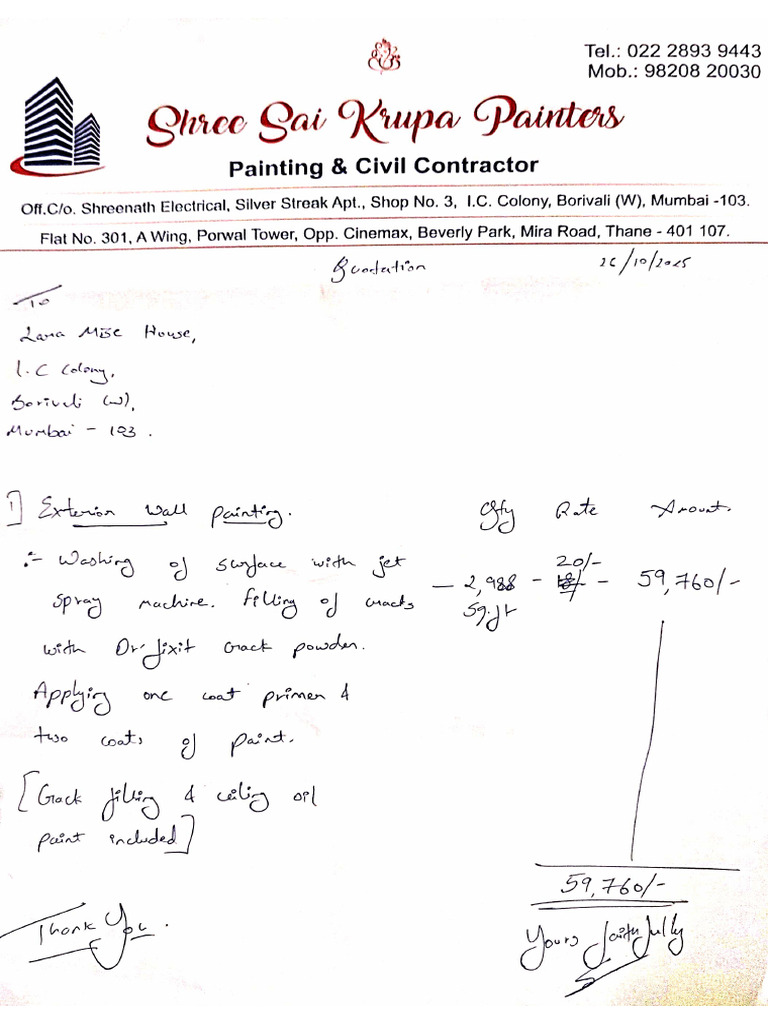 Tel.: 022 2893 9443
Mob.: 98208 20030
Shree Sai Krupa Painters
Painting & Civil Contractor
Off.C/o. Shreenath Electrical, Silver Streak Apt., Shop No. 3, I.C. Colony, Borivali (W), Mumbai -103.
Flat No. 301, A Wing, Porwal Tower, Opp. Cinemax, Beverly Park, Mira Road, Thane - 401 107.
Quotation 26/10/2025
To
House,
I.C Colony,
Borivali (W),
Mumbai - 103.
1] Exterior Wall painting. Qty Rate Amount.
:- Washing of surface with jet - 2,988 - 20/- - 59,760/-
spray machine. filling of cracks sq.ft
with Dr. fixit crack powder.
Applying one coat primer &
two coats of paint.
[Crack filling & ceiling oil
paint included]
59,760/-
Thank You.
Yours faithfully